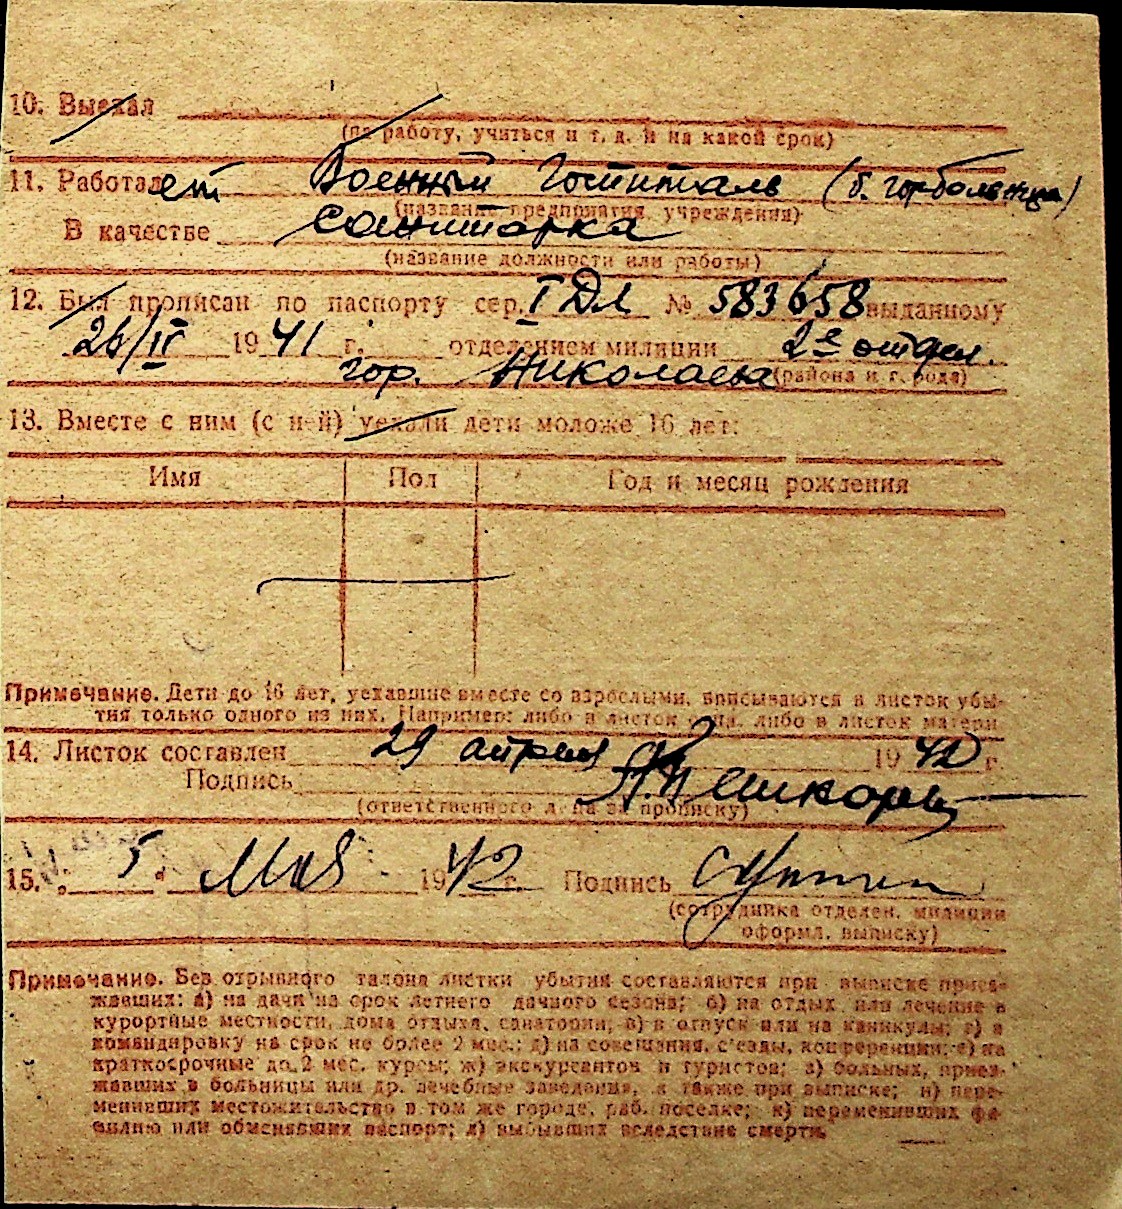 10. Выехал
(на работу, учиться и т. д. и на какой срок)
11. Работает Военный Госпиталь (б. горбольница)
(название предприятия, учреждения)
В качестве санитарка
(название должности или работы)
12. Был прописан по паспорту сер. I ДЛ № 583658 выданному
26/IV 1941 г. отделением милиции 2е отдел.
гор. Николаева (района и города)
13. Вместе с ним (с ней) уехали дети моложе 16 лет:
Имя Пол Год и месяц рождения
Примечание. Дети до 16 лет, уехавшие вместе со взрослыми, вписываются в листок убы-
тия только одного из них. Например: либо в листок отца, либо в листок матери
14. Листок составлен 29 апреля 1942 г.
Подпись
(ответственного лица за прописку)
15. „5“ Мая 1942 г. Подпись
(сотрудника отделен. милиции
оформл. выписку)
Примечание. Без отрывного талона листки убытия составляются при выписке приез-
жавших: а) на дачи на срок летнего дачного сезона; б) на отдых или лечение в
курортные местности, дома отдыха, санатории; в) в отпуск или на каникулы; г) в
командировку на срок не более 2 мес.; д) на совещания, с'езды, конференции; е) на
краткосрочные до 2 мес. курсы; ж) экскурсантов и туристов; з) больных, приез-
жавших в больницы или др. лечебные заведения, а также при выписке; и) пере-
менивших местожительство в том же городе, раб. поселке; к) переменивших фа-
милию или обменявших паспорт; л) выбывших вследствие смерти.